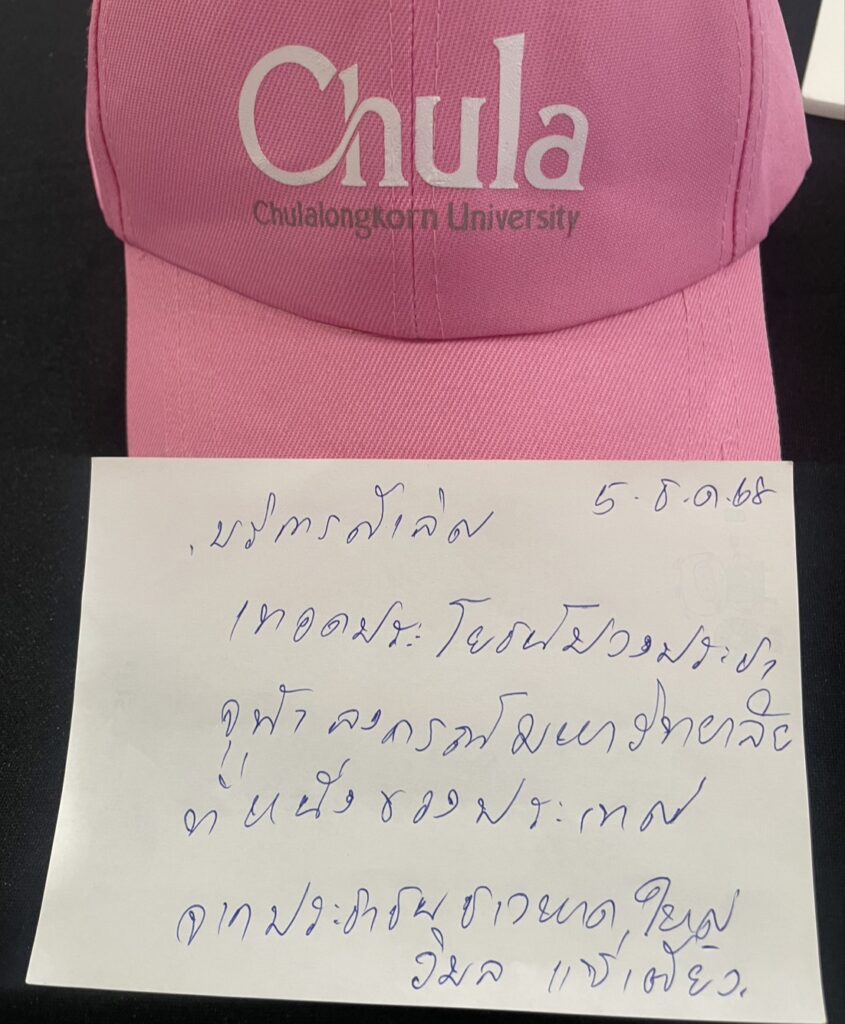 Chula
Chulalongkorn University
5.ธ.ค.68
บริการล้ำเลิศ
เทอดประโยชน์ปวงประชา
จุฬาลงกรณ์มหาวิทยาลัย
ที่หนึ่งของประเทศ
จากประชาชนชาวหาดใหญ่
วิมล แซ่เตียว.